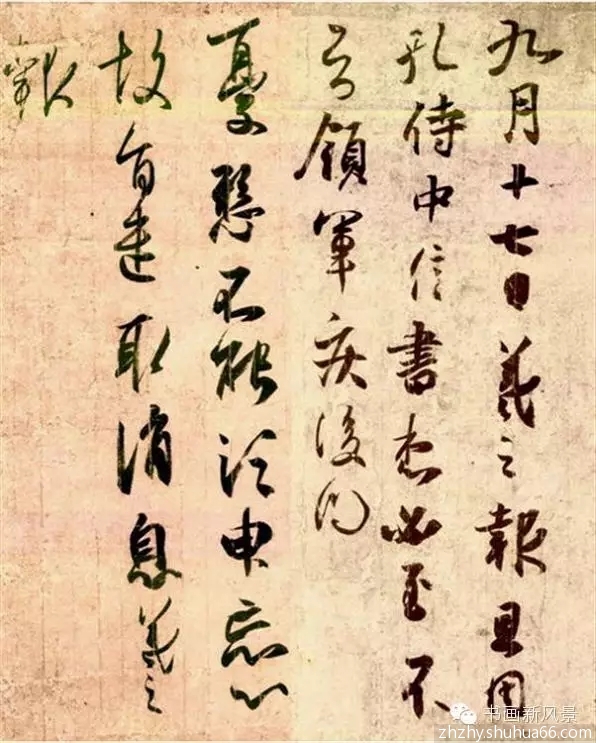 九月十七日羲之報且因
孔侍中信書想必至不
知領軍疾後問
憂懸不能須臾忘心
故旨遣取消息羲之
報
书画新风景
zhzhy.shuhua66.com